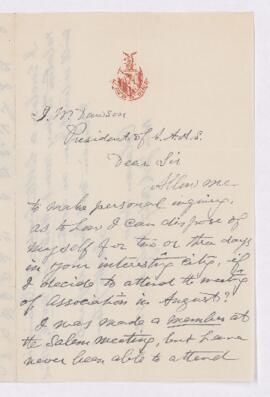 J. W. Dawson
President of A.A.A.S.
Dear Sir
Allow me
to make personal inquiry,
as to how I can dispose of
myself for two or three days
in your interesting city, if
I decide to attend the meeting
of Association in August?
I was made a member at
the Salem meeting, but have
never been able to attend